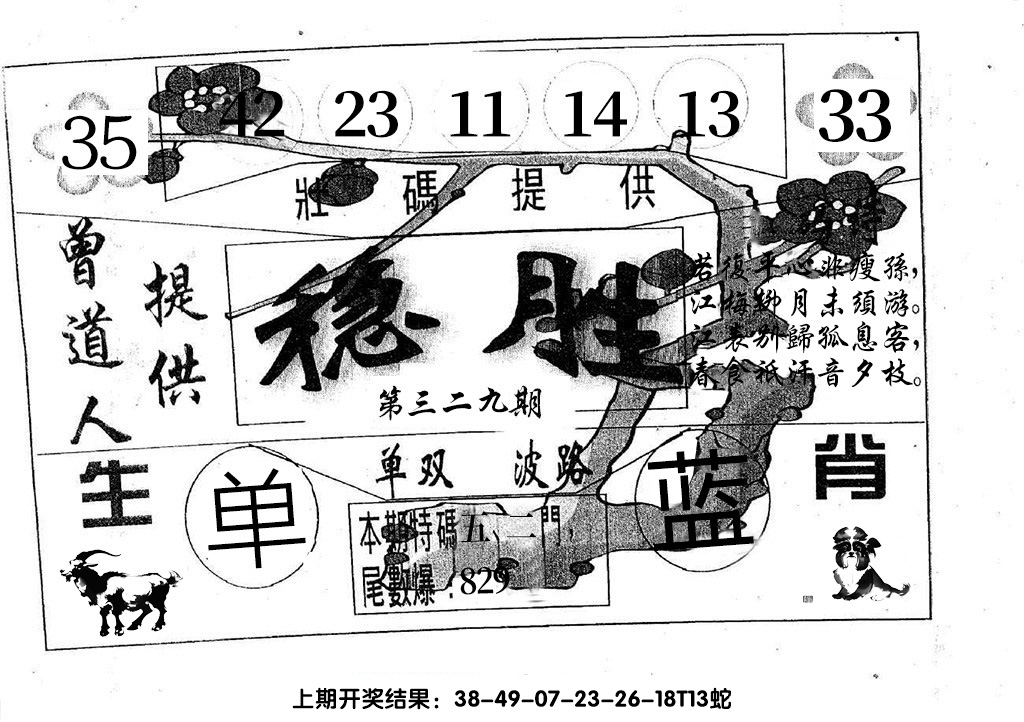 35 42 23 11 14 13 33
壯碼提供
曾道人
提供
稳胜
第三二九期
若復平心非瘦孫，
江梅𭃂月未須游。
江表别歸孤息客，
春食祇汗音夕枝。
单双 波路
生
单
蓝
肖
本期特碼五、二門，
尾數爆：829
上期开奖结果：38-49-07-23-26-18T13蛇